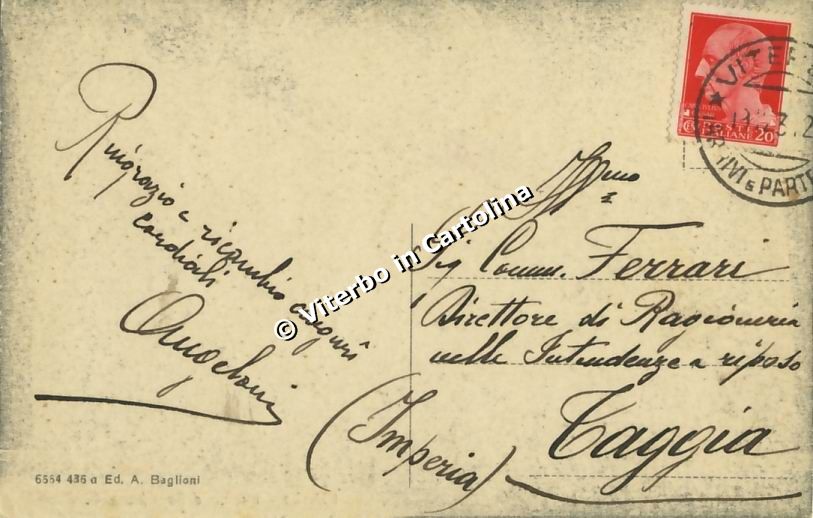 Ringrazio e ricambio auguri
cordiali
Angeloni
Ill.mo
Sig. Comm. Ferrari
Direttore di Ragioneria
nelle Intendenze a riposo
Taggia
(Imperia)
© Viterbo in Cartolina
6564 436 a Ed. A. Baglioni
POSTE
ITALIANE
CENT 20
VITER
ARRIVI E PARTE